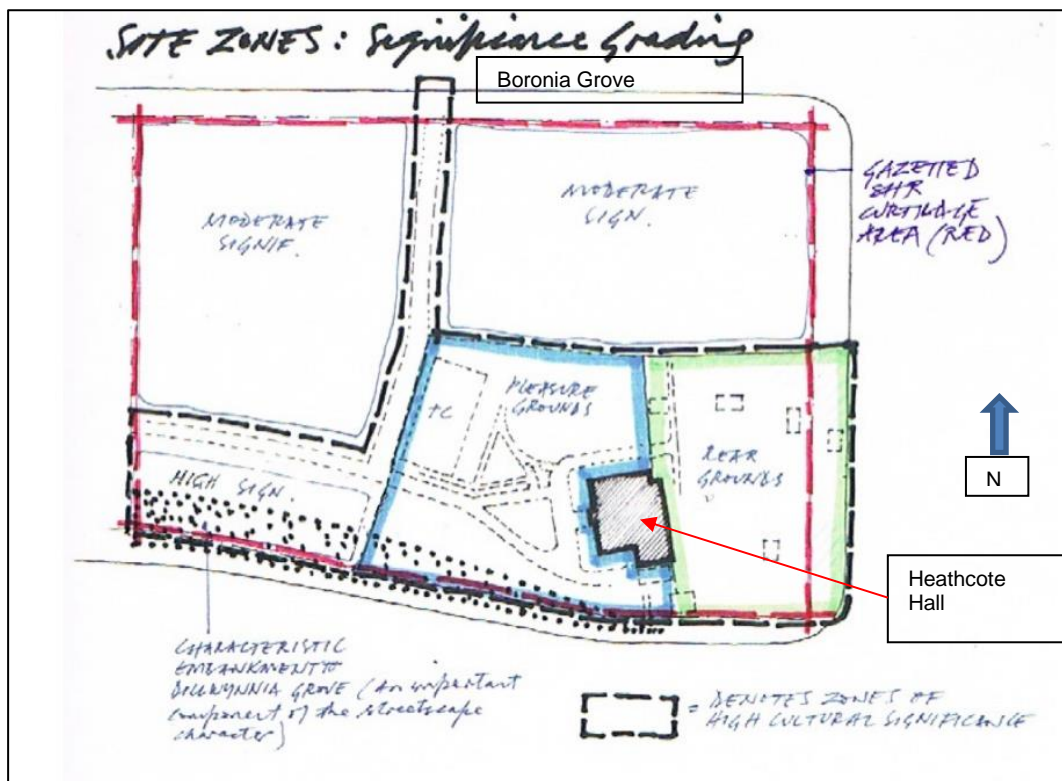 SITE ZONES: Significance Grading
Boronia Grove
GAZETTED
SHR
CURTILAGE
AREA (RED)
MODERATE
SIGNIF.
MODERATE
SIGN.
PLEASURE
GROUNDS
TC
REAR
GROUNDS
N
HIGH SIGN.
Heathcote
Hall
CHARACTERISTIC
EMBANKMENT
DILLWYNNIA GROVE (An important
component of the streetscape
character)
= DENOTES ZONES OF
HIGH CULTURAL SIGNIFICANCE